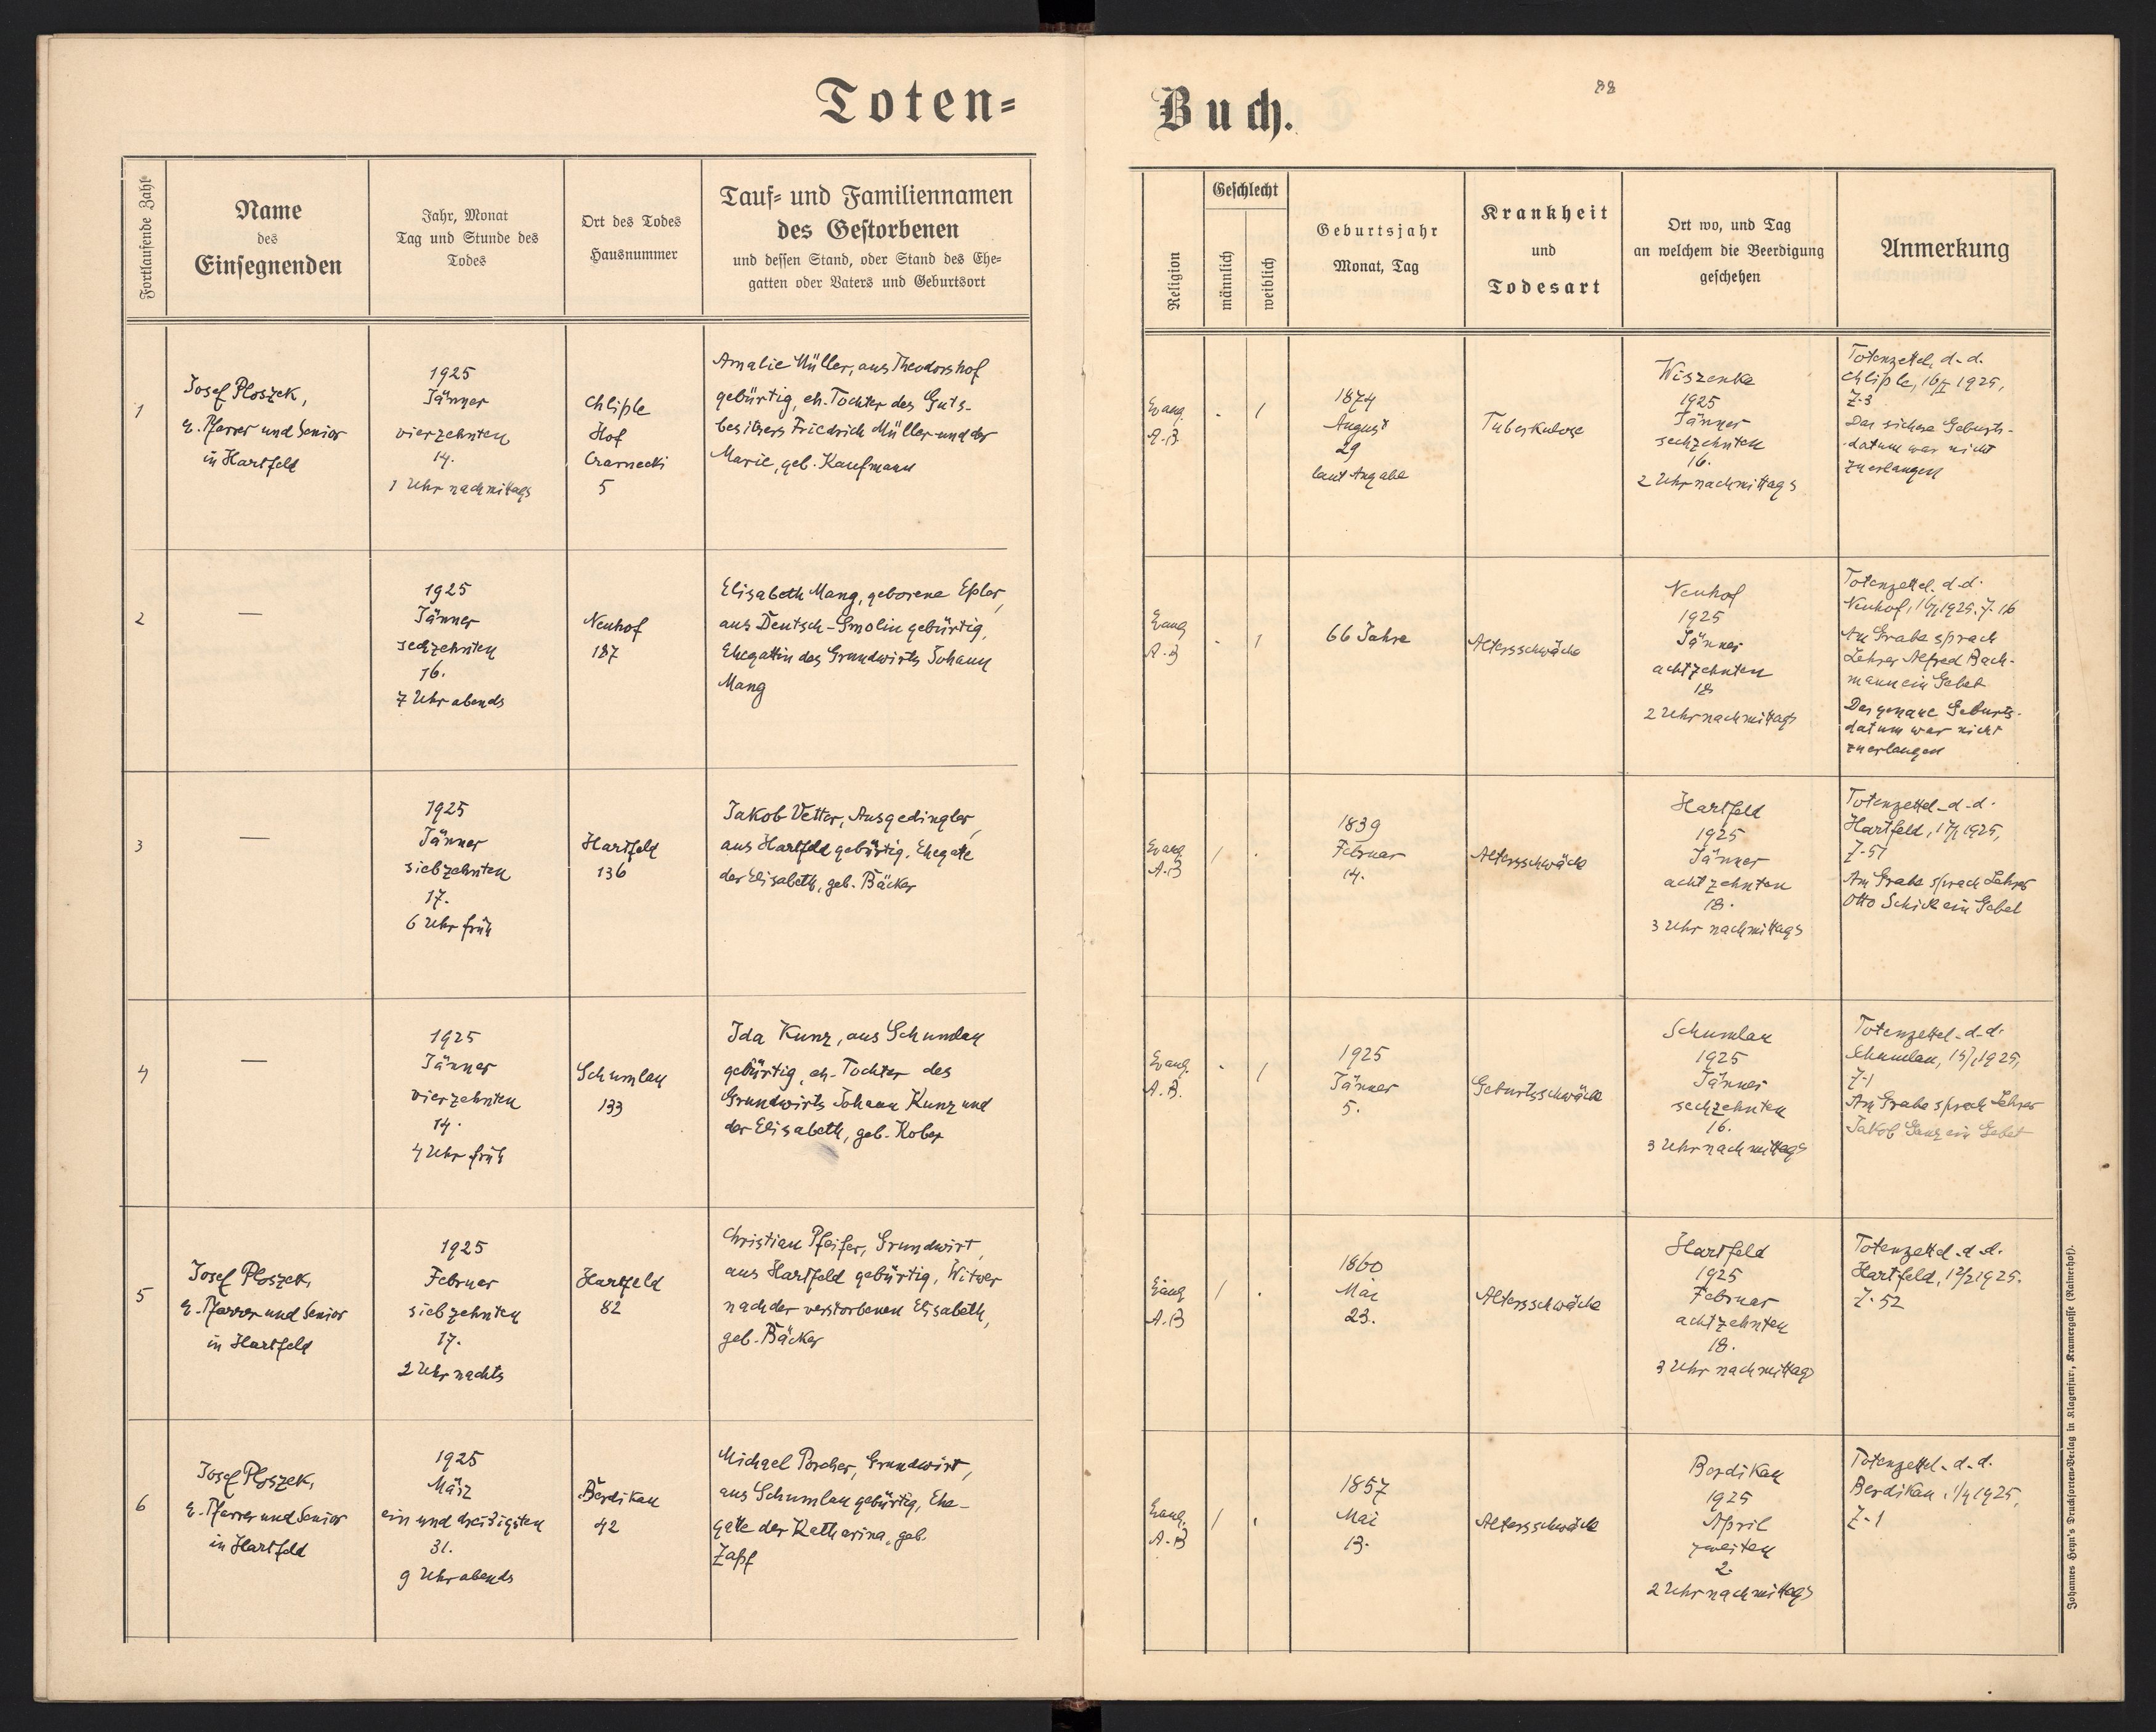 Toten=
Buch.
88
Fortlaufende Zahl
Name
des
Einsegnenden
Jahr, Monat
Tag und Stunde des
Todes
Ort des Todes
Hausnummer
Tauf= und Familiennamen
des Gestorbenen
und dessen Stand, oder Stand des Ehe=
gatten oder Vaters und Geburtsort
Religion
Geschlecht
männlich
weiblich
Geburtsjahr
Monat, Tag
Krankheit
und
Todesart
Ort wo, und Tag
an welchem die Beerdigung
geschehen
Anmerkung
1
Josef Ploszek,
e. Pfarrer und Senior
in Hartfeld
1925
Jänner
vierzehnten
14.
1 Uhr nachmittags
Chliple
Hof
Czarnecki
5
Amalie Müller, aus Theodorshof
gebürtig, eh. Tochter des Guts-
besitzers Friedrich Müller und der
Marie, geb. Kaufmann
Evang.
A.B.
-
1
1874
August
29
laut Angabe
Tuberkulose
Wiszenka
1925
Jänner
sechzehnten
16.
2 Uhr nachmittags
Totenzettel, d. d.
Chliple, 16/I 1925,
Z. 3
Das sichere Geburts-
datum war nicht
zu erlangen
2
—
1925
Jänner
sechzehnten
16.
7 Uhr abends
Neuhof
187
Elisabeth Mang, geborene Epler,
aus Deutsch-Smolin gebürtig,
Ehegattin des Grundwirts Johann
Mang
Evang
A.B
-
1
66 Jahre
Altersschwäche
Neuhof
1925
Jänner
achtzehnten
18
2 Uhr nachmittags
Totenzettel. d. d.
Neuhof, 16/1 1925. Z. 16
Am Grabe sprach
Lehrer Alfred Bach-
mann ein Gebet
Das genaue Geburts-
datum war nicht
zu erlangen
3
—
1925
Jänner
siebzehnten
17.
6 Uhr früh
Hartfeld
136
Jakob Vetter, Ausgedingler,
aus Hartfeld gebürtig. Ehegatte
der Elisabeth, geb. Bäcker
Evang
A.B
1
.
1839
Februar
14.
Altersschwäche
Hartfeld
1925
Jänner
achtzehnten
18.
3 Uhr nachmittags
Totenzettel. d. d.
Hartfeld, 17/1 1925,
Z. 51
Am Grabe sprach Lehrer
Otto Schick ein Gebet
4
—
1925
Jänner
vierzehnten
14.
4 Uhr früh
Schumlau
133
Ida Kunz, aus Schumlau
gebürtig, eh. Tochter des
Grundwirts Johann Kunz und
der Elisabeth, geb. Kober
Evang.
A.B.
-
1
1925
Jänner
5.
Geburtsschwäche
Schumlau
1925
Jänner
sechzehnten
16.
3 Uhr nachmittags
Totenzettel. d. d.
Schumlau, 15/1 1925,
Z. 1
Am Grabe sprach Lehrer
Jakob Ganz ein Gebet
5
Josef Ploszek,
e. Pfarrer und Senior
in Hartfeld
1925
Februar
siebzehnten
17.
2 Uhr nachts
Hartfeld
82
Christian Pfeifer, Grundwirt,
aus Hartfeld gebürtig, Witwer
nach der verstorbenen Elisabeth,
geb. Bäcker
Evang
A.B
1
.
1860
Mai
23.
Altersschwäche
Hartfeld
1925
Februar
achtzehnten
18.
3 Uhr nachmittag
Totenzettel. d. d.
Hartfeld, 1925.
Z. 52
6
Josef Ploszek,
e. Pfarrer und Senior
in Hartfeld
1925
März
ein und dreißigsten
31.
9 Uhr abends
Berdikau
42
Michael Porcher, Grundwirt,
aus Schumlau gebürtig, Ehe-
gatte der Katharina, geb.
Zapf
Evang.
A.B
1
.
1857
Mai
13.
Altersschwäche
Berdikau
1925
April
zweiten
2.
2 Uhr nachmittags
Totenzettel. d. d.
Berdikau, 1/4 1925,
Z. 1
Johannes Heyn's Drucksorten=Verlag in Klagenfurt, Kramergasse (Rainerhof).